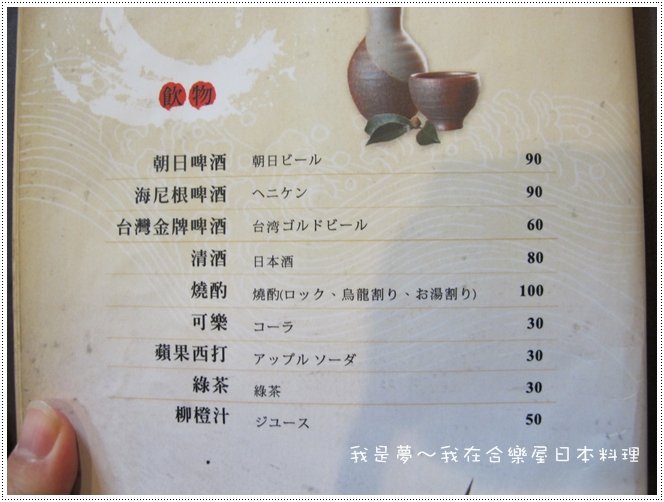 飲物
朝日啤酒 朝日ビール 90
海尼根啤酒 ヘニケン 90
台灣金牌啤酒 台湾ゴルドビール 60
清酒 日本酒 80
燒酌 燒酌(ロック、烏龍割り、お湯割り) 100
可樂 コーラ 30
蘋果西打 アップル ソーダ 30
綠茶 綠茶 30
柳橙汁 ジユース 50
我是夢～我在合樂屋日本料理